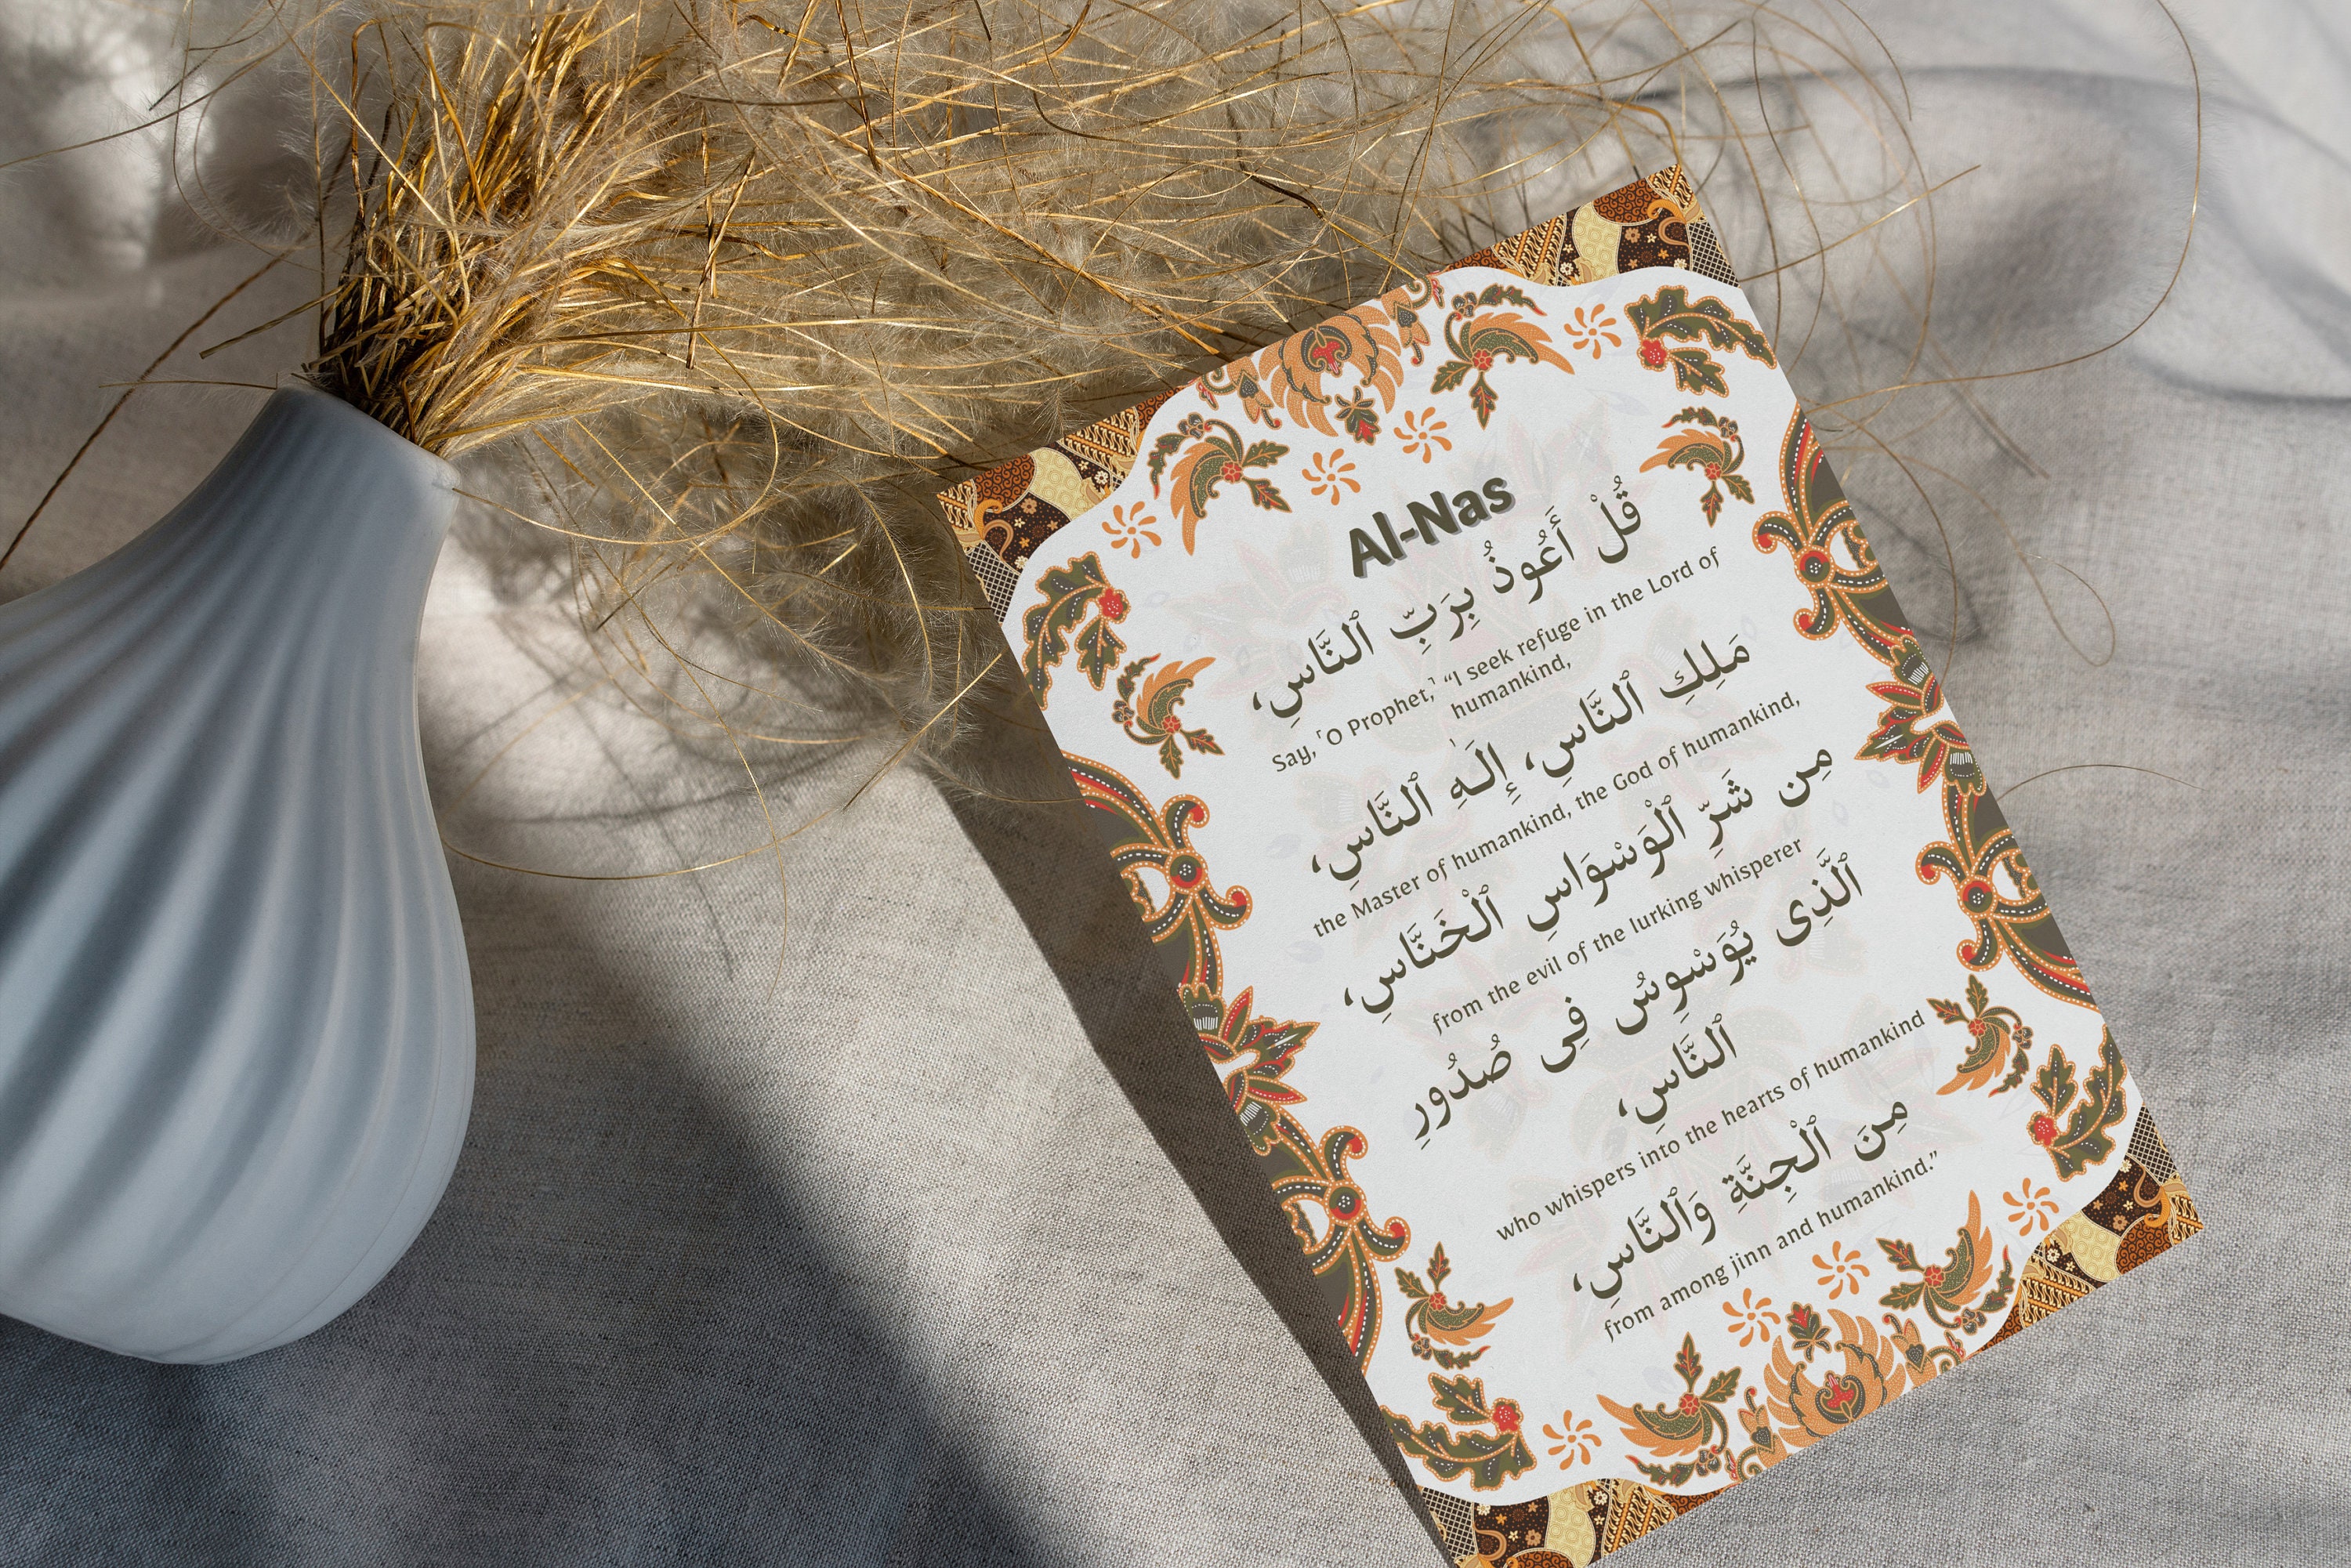 Al-Nas
قُلْ أَعُوذُ بِرَبِّ ٱلنَّاسِ،
Say, ˹O Prophet,˺ “I seek refuge in the Lord of
humankind,
مَلِكِ ٱلنَّاسِ، إِلَـٰهِ ٱلنَّاسِ،
the Master of humankind, the God of humankind,
مِن شَرِّ ٱلْوَسْوَاسِ ٱلْخَنَّاسِ،
from the evil of the lurking whisperer
ٱلَّذِى يُوَسْوِسُ فِى صُدُورِ
ٱلنَّاسِ،
who whispers into the hearts of humankind
مِنَ ٱلْجِنَّةِ وَٱلنَّاسِ،
from among jinn and humankind.”